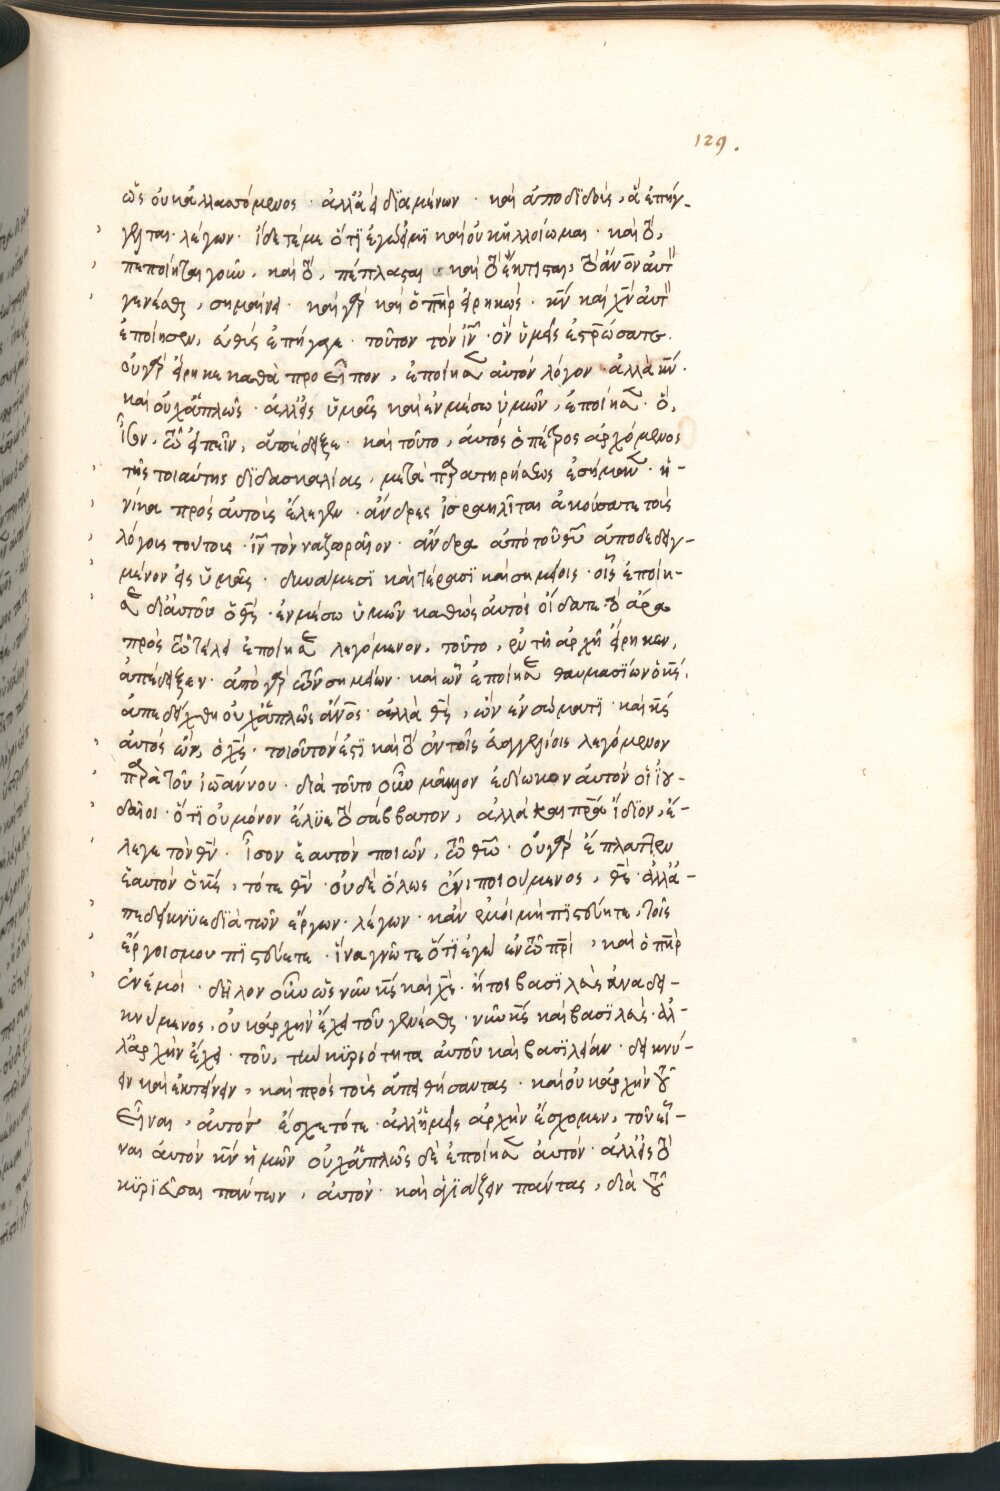 129.
ὡς οὐκ ἀλλασσόμενος· ἀλλ' ἀεὶ διαμένων· καὶ ἀποδιδοὺς, ἃ ἐπήγ-
γελται· λέγων· ἴδετέ με ὅτϊ ἐγώ εἰμϊ καὶ οὐκ ἠλλοίωμαι· καὶ τὸ,
πεποίηται γοῦν, καὶ τὸ, πέπλασται καὶ τὸ ἔκτισται, τὸ ἀν̅ο̅ν αὐτὸν
γενέσθαι, σημαίνει· καὶ γὰρ καὶ ὁ π̅η̅ρ εἰρηκώς· κ̅ν̅ καὶ χ̅ν̅ αὐτὸν
ἐποίησεν, εὐθὺς ἐπήγαγε· τοῦτον τὸν ι̅ν̅· ὃν ὑμεῖς ἐσ̅ρ̅ώσατε·
οὐ γὰρ εἴρηκε καθὰ προεῖπον, ἐποίησεν αὐτὸν λόγον· ἀλλὰ κ̅ν̅·
καὶ οὐχ ἁπλῶς· ἀλλ' εἰς ὑμᾶς καὶ ἐν μέσω ὑμῶν, ἐποίησεν· ὃ,
ἴσον, τῶ εἰπεῖν, ἀπέδειξε· καὶ τοῦτο, αὐτὸς ὁ πέτρος ἀρχόμενος
τῆς τοιαύτης διδασκαλίας, μετὰ παρατηρήσεως ἐσήμανεν· ἡ-
νίκα πρὸς αὐτοὺς ἔλεγεν· ἄνδρες ἰσραηλῖται ἀκούσατε τοὺς
λόγους τούτους· ι̅ν̅ τὸν ναζωραῖον· ἄνδρα ἀπὸ τοῦ θ̅υ̅ ἀποδεδειγ-
μένον εἰς ὑμᾶς· δυνάμεσϊ καὶ τέρασϊ καὶ σημείοις· οἷς ἐποίη-
σεν δι' αὐτοῦ ὁ θ̅ς̅· ἐν μέσω ὑμῶν καθὼς αὐτοὶ οἴδατε· τὸ ἄρα
πρὸς τῶ τέλει ἐποίησεν λεγόμενον, τοῦτο, ἐν τῆ ἀρχῆ εἴρηκεν,
ἀπέδειξεν· ἀπὸ γὰρ τῶν σημείων· καὶ ὧν ἐποίησεν θαυμασϊων ὁ κ̅ς̅,
ἀπεδείχθη οὐχ ἁπλῶς ἀν̅ο̅ς· ἀλλὰ θ̅ς̅, ὢν ἐν σώματϊ· καὶ κ̅ς̅
αὐτὸς ὢν, ὁ χ̅ς̅· τοιοῦτόν ἐστϊ καὶ τὸ ἐν τοῖς εὐαγγελίοις λεγόμενον
παρὰ τοῦ ἰωάννου· διὰ τοῦτο οὖν μᾶλλον ἐδίωκον αὐτὸν οἱ ἰου-
δαῖοι· ὅτϊ οὐ μόνον ἔλυε τὸ σάββατον, ἀλλὰ καὶ π̅ρ̅α ἴδϊον, ἔ-
λεγε τὸν θ̅ν̅· ἴσον ἑαυτὸν ποιῶν, τῶ θ̅ω̅· οὐ γὰρ ἔπλαττεν
ἑαυτὸν ὁ κ̅ς̅, τότε θ̅ν̅· οὐδὲ ὅλως ἐνι ποιούμενος, θ̅ς̅· ἀλλ' ἀ-
πεδείκνυε δϊὰ τῶν ἔργων· λέγων· κἂν ἐμοὶ μὴ πϊστεύητε, τοῖς
ἔργοις μου πϊστεύετε· ἵνα γνῶτε ὅτϊ ἐγὼ ἐν τῶ π̅ρ̅ι̅, καὶ ὁ π̅η̅ρ
ἐν ἐμοί· δῆλον οὖν ὡς νῦν κ̅ς̅ καὶ χ̅ς̅· ἤτοι βασϊλεὺς ἀναδει-
κνύμενος, οὐκ ἀρχὴν ἔχει τοῦ γενέσθαι· νῦν κ̅ς̅ καὶ βασϊλεὺς· ἀλ-
λ' ἀρχὴν ἔχει· τοῦ, τὴν κϋρϊότητα αὐτοῦ καὶ βασϊλείαν· δεικνύ-
ειν καὶ ἐκτείνειν, καὶ πρὸς τοὺς ἀπειθήσαντας· καὶ οὐκ ἀρχὴν τοῦ
εἶναι, αὐτὸν ἔσχε τότε· ἀλλ' ἡμεῖς ἀρχὴν ἔσχομεν, τὸν εἶ-
ναι αὐτὸν κ̅ν̅ ἡμῶν οὐχ ἁπλῶς δὲ ἐποίησεν αὐτόν· ἀλλ' εἰς τὸ
κϋρϊεῦσαι πάντων, αὐτόν· καὶ ἁγϊάζειν πάντας, διὰ τοῦ